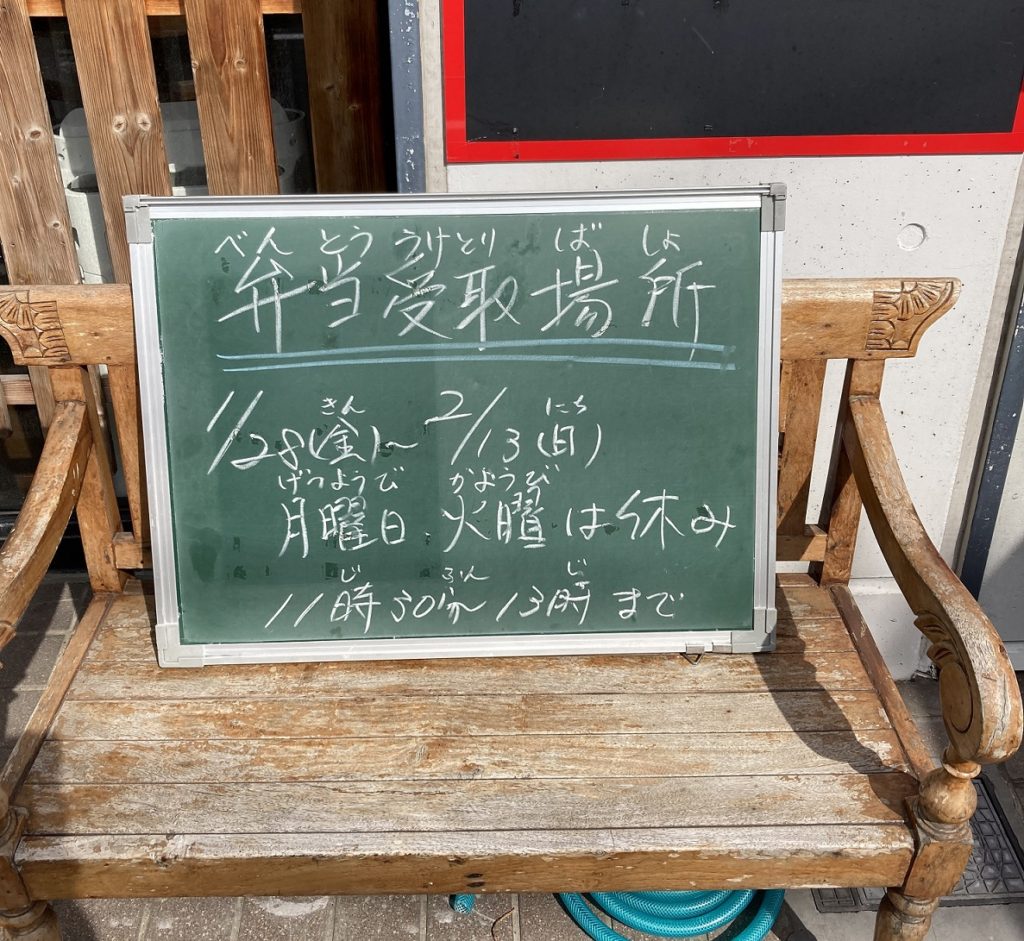 べんとう うけとり ばしょ
弁当受取場所
きん にち
1/28(金)～2/13(日)
げつようび かようび
月曜日 火曜は休み
じ ふん じ
11時30分～13時まで